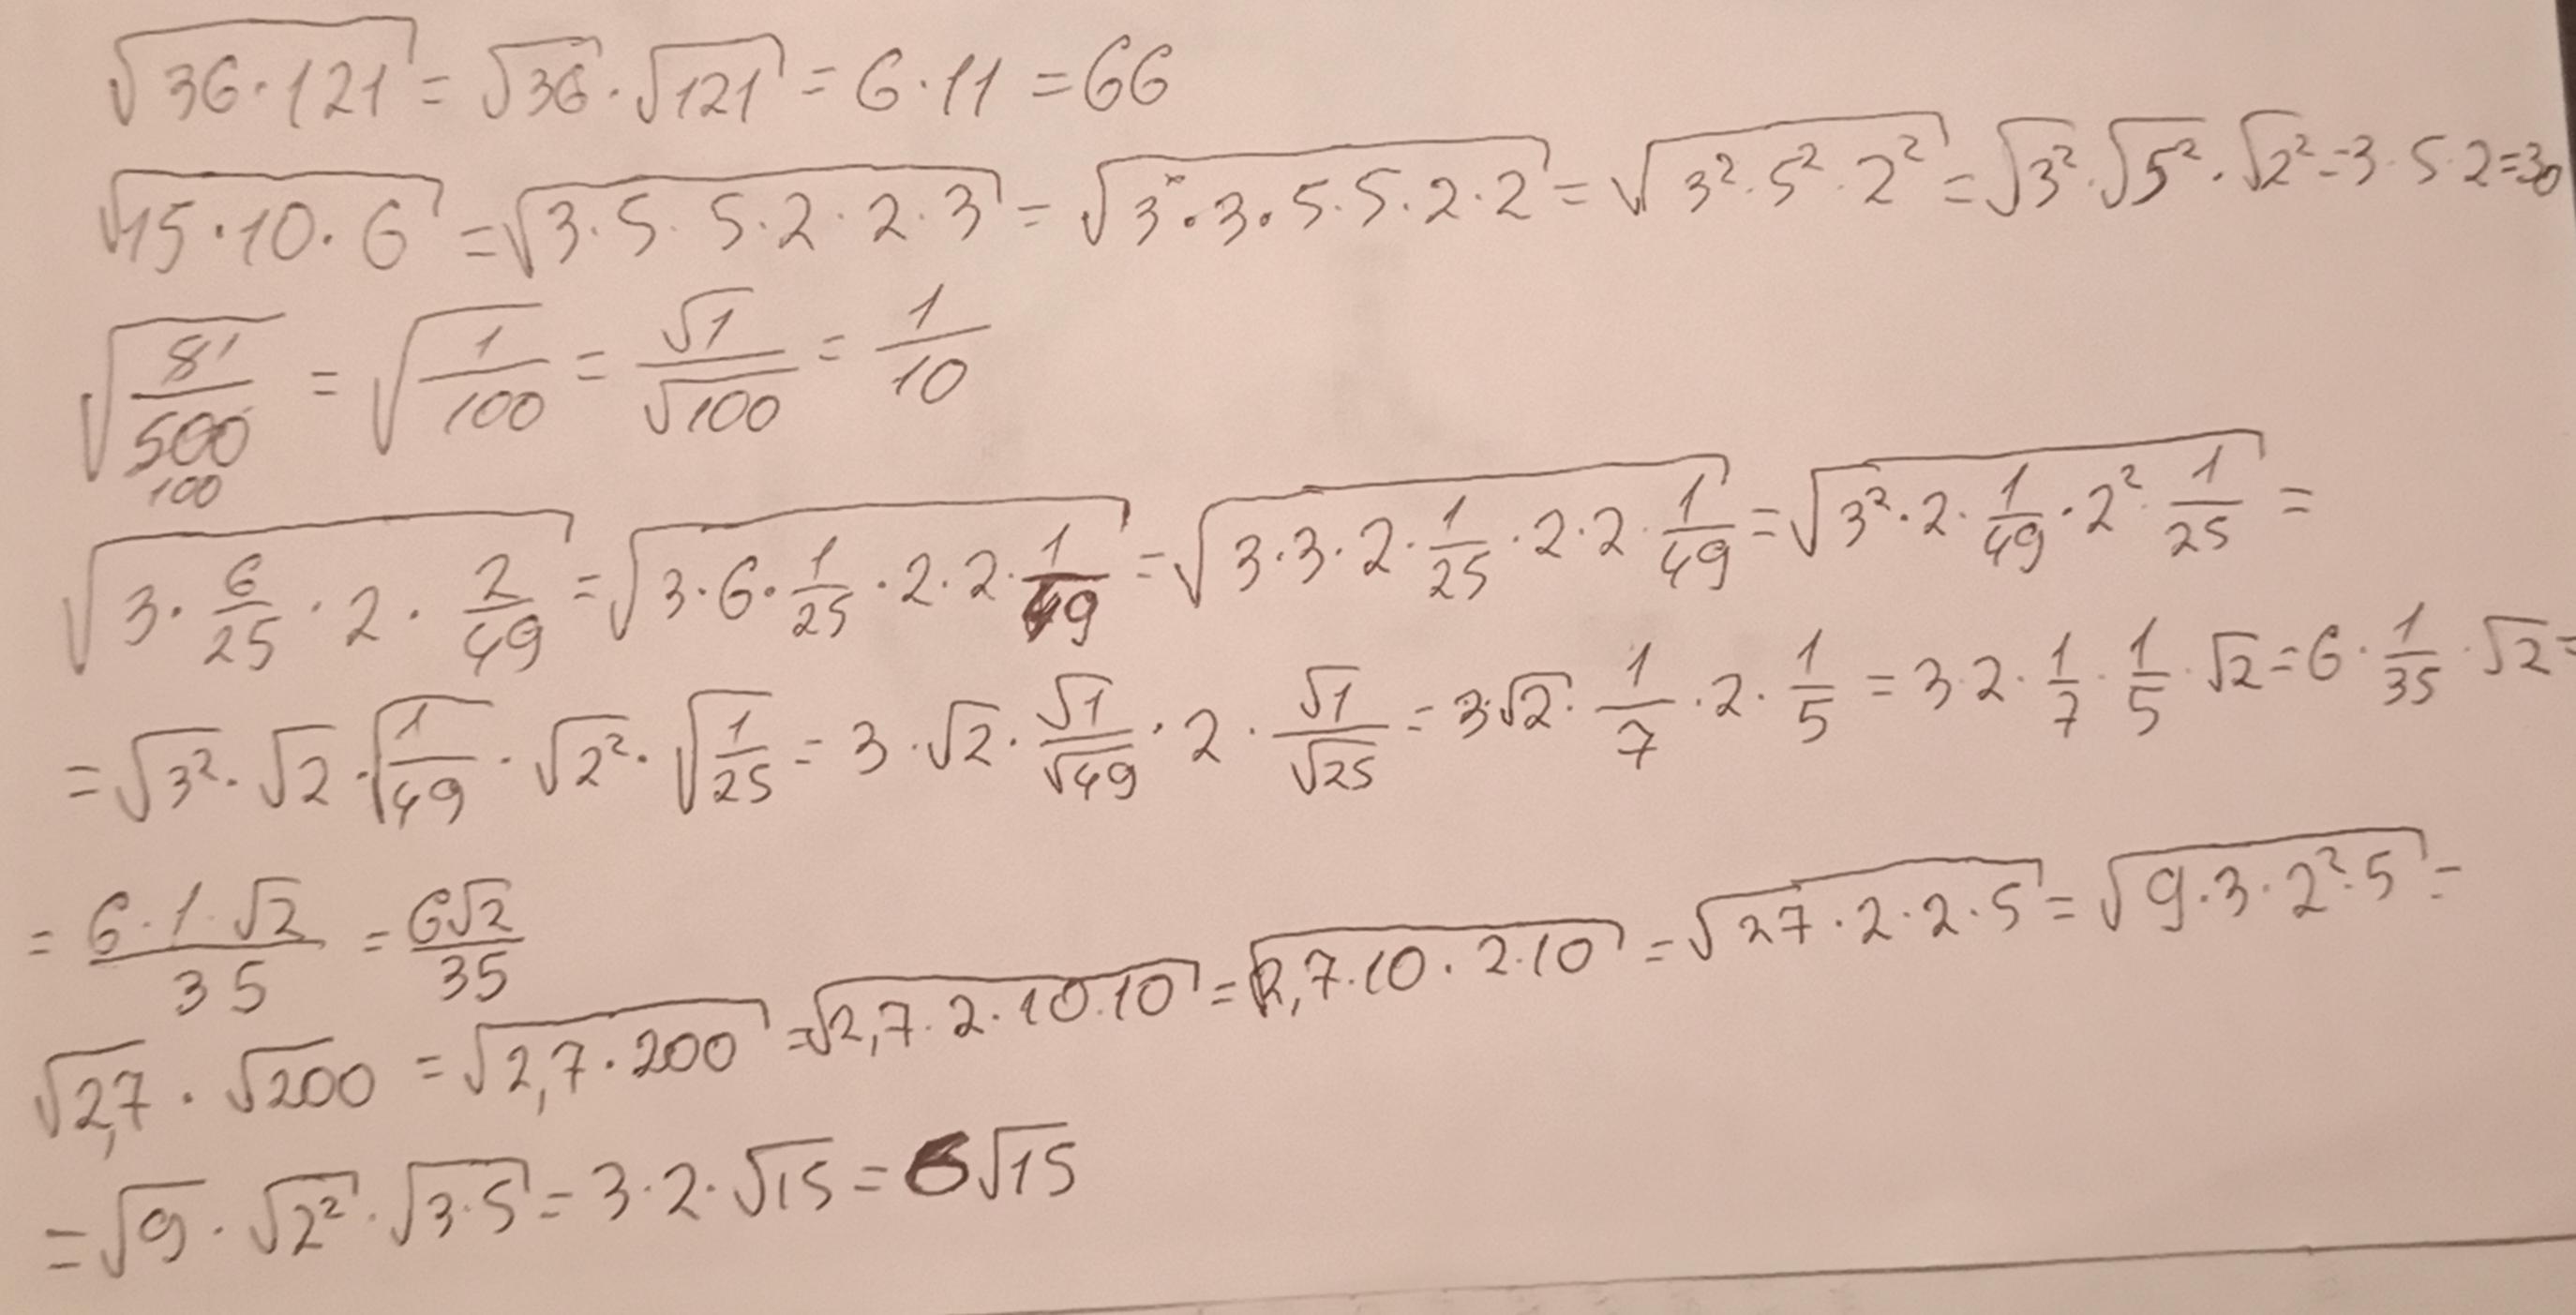 √(36·121) = √36·√121 = 6·11 = 66
√(15·10·6) = √(3·5·5·2·2·3) = √(3·3·5·5·2·2) = √(3²·5²·2²) = √3²·√5²·√2² = 3·5·2 = 30
√(8/500) = √(1/100) = √1/√100 = 1/10
1
100
√(3·6/25·2·2/49) = √(3·6·1/25·2·2·1/49) = √(3·3·2·1/25·2·2·1/49) = √(3²·2·1/49·2²·1/25) =
= √3²·√2·√(1/49)·√2²·√(1/25) = 3·√2·√1/√49·2·√1/√25 = 3·√2·1/7·2·1/5 = 3·2·1/7·1/5·√2 = 6·1/35·√2 =
= 6·1·√2/35 = 6√2/35
√2,7·√200 = √(2,7·200) = √(2,7·2·10·10) = √(2,7·10·2·10) = √(27·2·2·5) = √(9·3·2²·5) =
= √9·√2²·√(3·5) = 3·2·√15 = 6√15